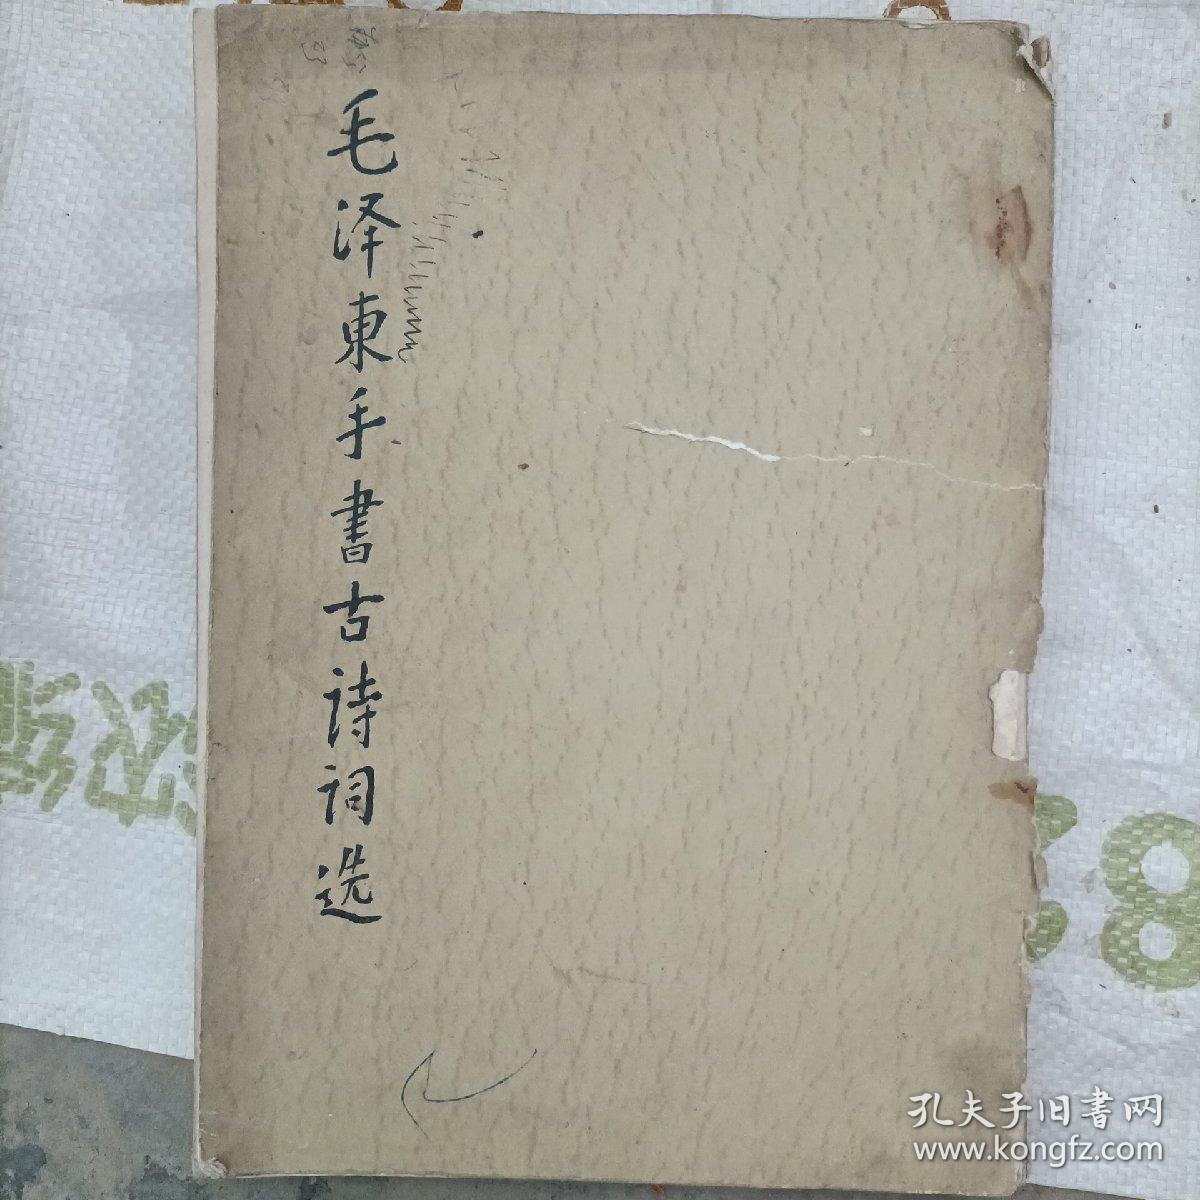 毛泽東手書古诗词选
88
孔夫子旧書网
www.kongfz.com